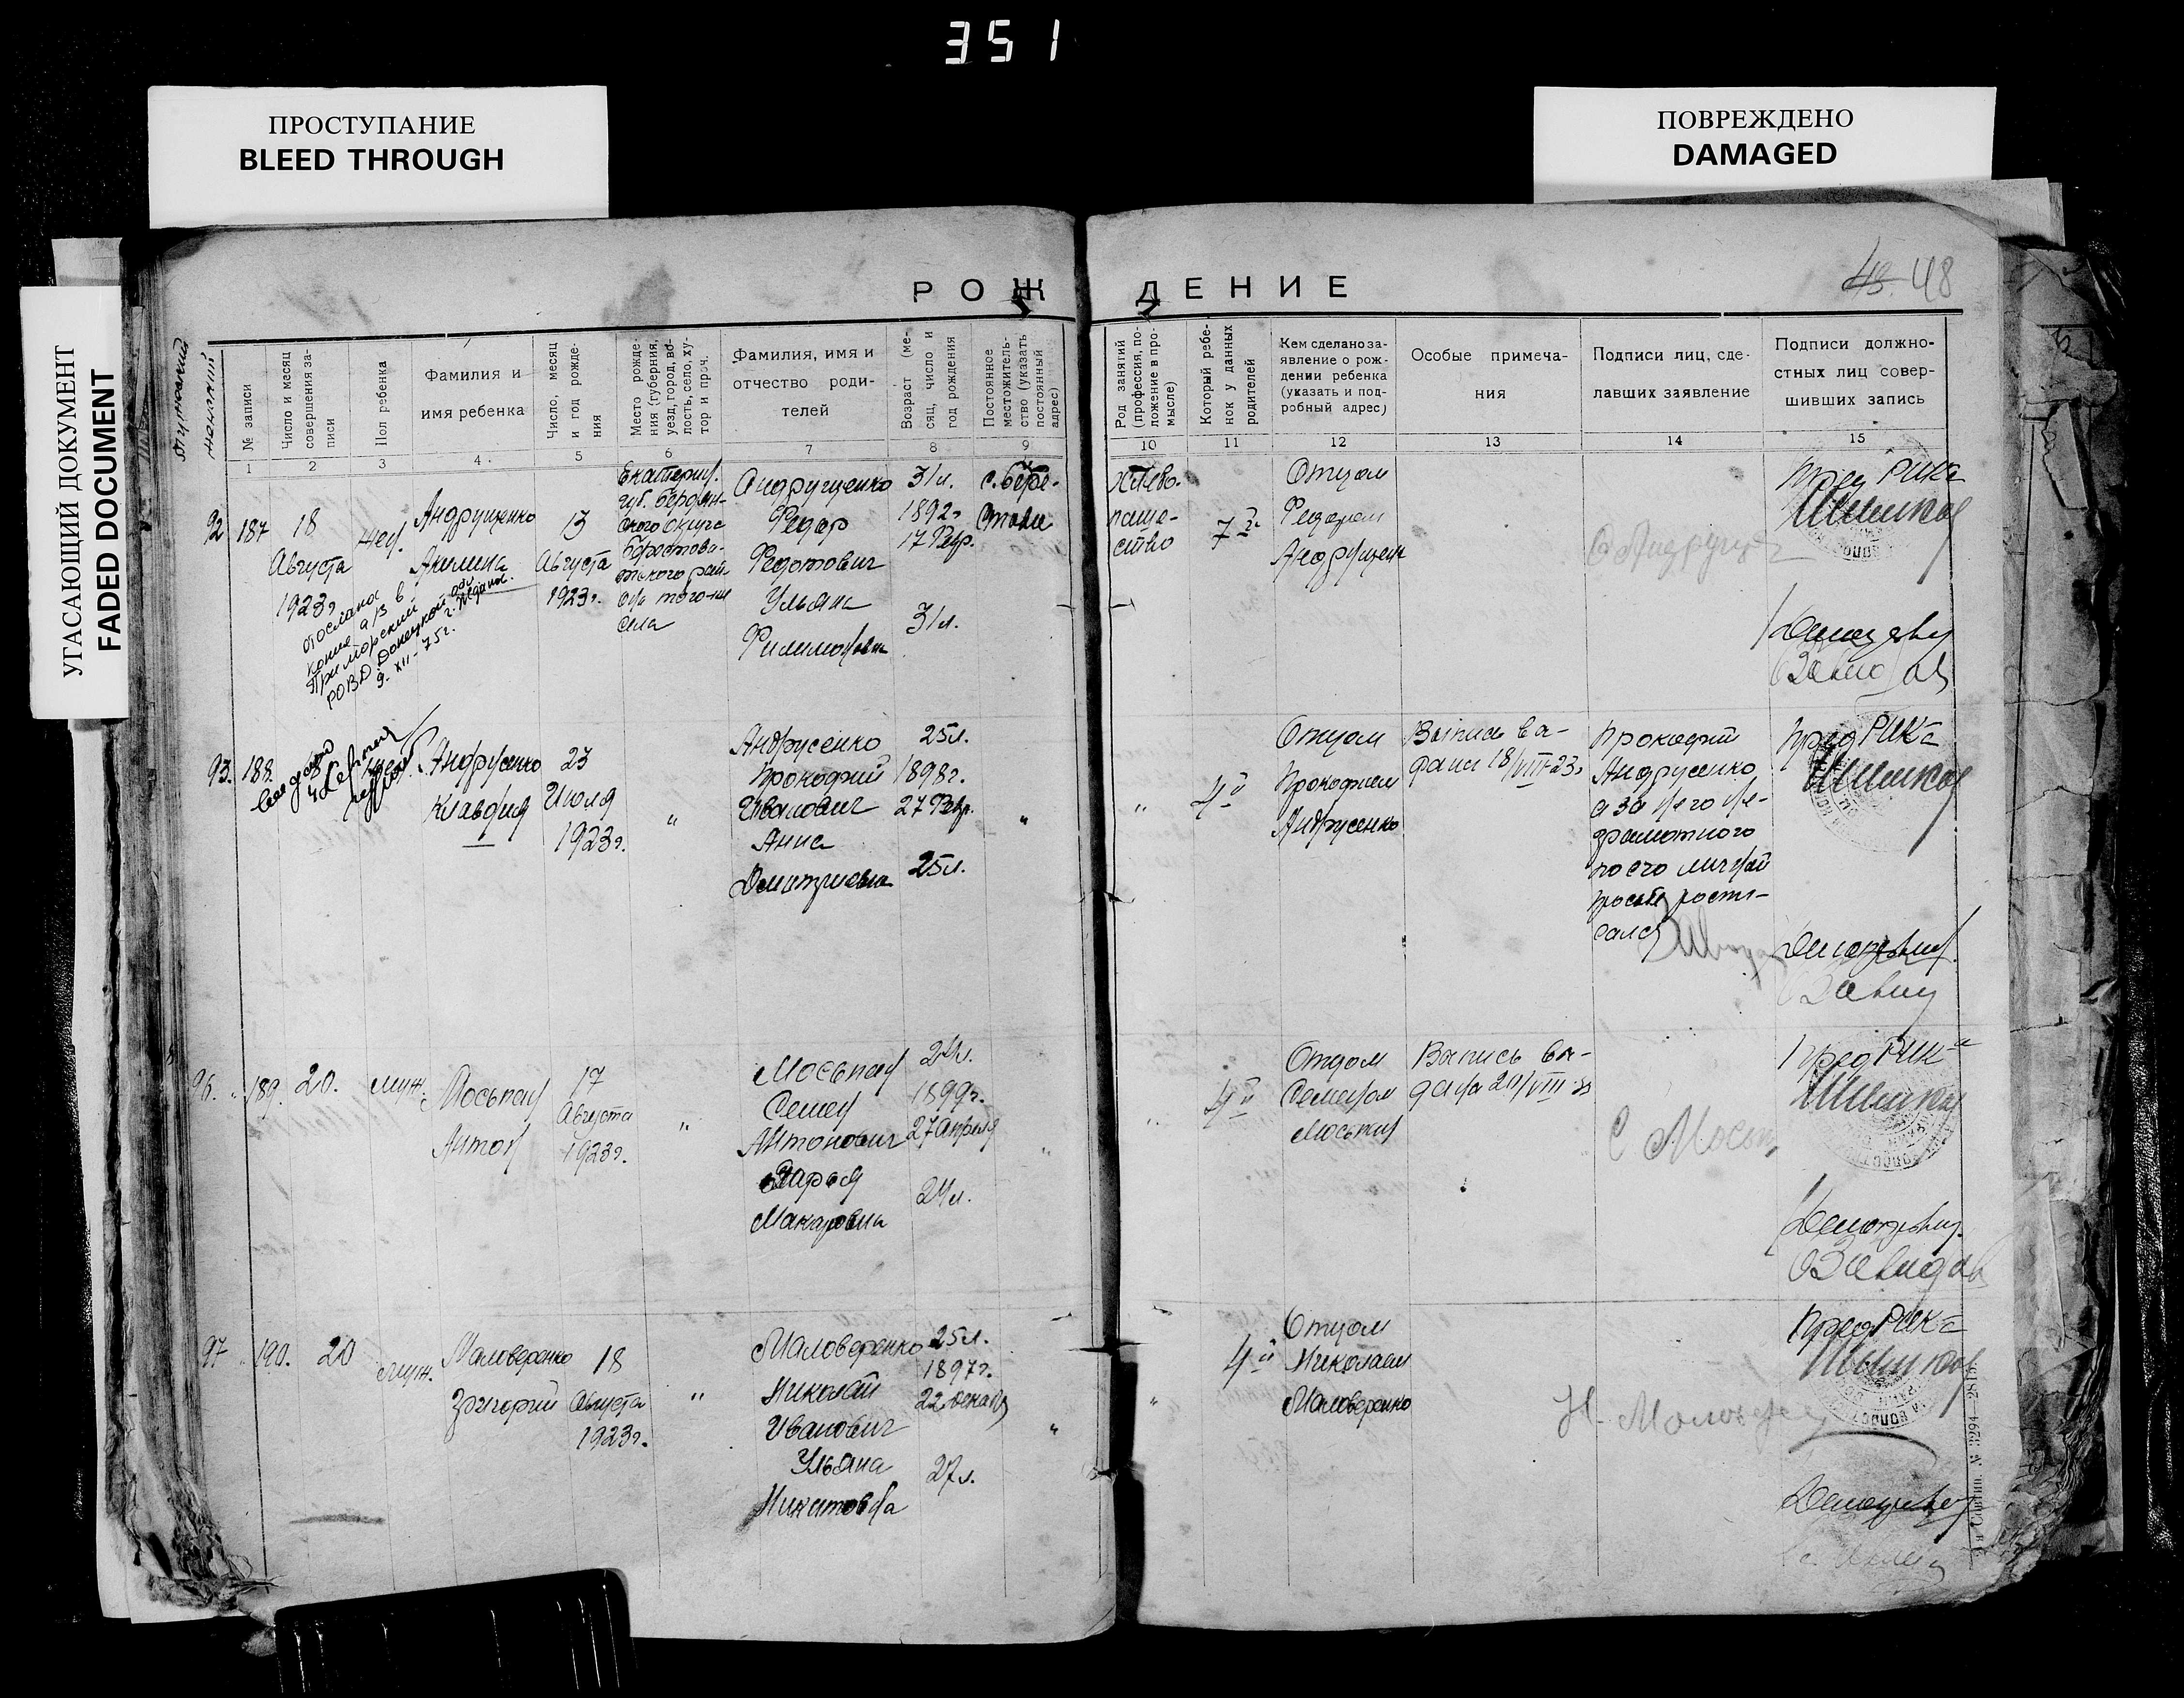 351
ПРОСТУПАНИЕ
BLEED THROUGH
ПОВРЕЖДЕНО
DAMAGED
УГАСАЮЩИЙ ДОКУМЕНТ
FADED DOCUMENT
48
РОЖДЕНИЕ
№ записи
Число и месяц совершения записи
Пол ребенка
Фамилия и имя ребенка
Число, месяц и год рождения
Место рождения (губерния, уезд, город, волость, село, хутор и проч.
Фамилия, имя и отчество родителей
Возраст (месяц, число и год рождения
Постоянное местожительство (указать постоянный адрес)
Род занятий (профессия, положение в промысле)
Который ребенок у данных родителей
Кем сделано заявление о рождении ребенка (указать и подробный адрес)
Особые примечания
Подписи лиц, сделавших заявление
Подписи должностных лиц совершивших запись
1 2 3 4 5 6 7 8 9 10 11 12 13 14 15
92 187
18
Августа
1923г
жен.
Андрущенко
Акилина
13
Августа
1923г.
Екатерин.
губ. Бердян-
ского округа
Берестова-
того-же
села
Андрущенко
Федор
Федотович
Ульяна
Филимоновна
31л.
1892г
17 Февр.
31л.
с. Бере-
стове
Хлебо-
паше-
ство
7й
Отцом
Федором
Андрущен
Пред РИКа
Шишков
послана
копия а/з в
Приморский
РОВД Донецкой обл.
г. Жданов.
9-XII-75г.
93. 188.
Андрусенко
Клавдия
23
Июля
1923г.
"
Андрусенко
Прокофий
Иванович
Анна
Дмитриевна
25л.
1898г.
27 Февр.
25л.
"
"
4й
Отцом
Прокофием
Андрусенко
Выпись вы-
дана 18/VIII-23г
Прокофий
Андрусенко
а за него не-
грамотного
по его личной
просьбе роспи-
сался
Пред РИКа
Шишков
96. 189.
20.
муж.
Моспан
Антон
17
Августа
1923г.
"
Моспан
Семен
Антонович
Дарья
Макаровна
24л.
1899г.
27 Апреля
24л.
"
4й
Отцом
Семеном
Моспан
Выпись вы-
дана 20/VIII-23
С Моспан
Пред РИКа
Шишков
97 190.
20
муж.
Маловеренко
Григорий
18
Августа
1923г.
"
Маловеренко
Николай
Иванович
Ульяна
Никитовна
25л.
1897г.
22 декаб
27л.
"
"
4й
Отцом
Николаем
Маловеренко
Пред РИКа
Шишков